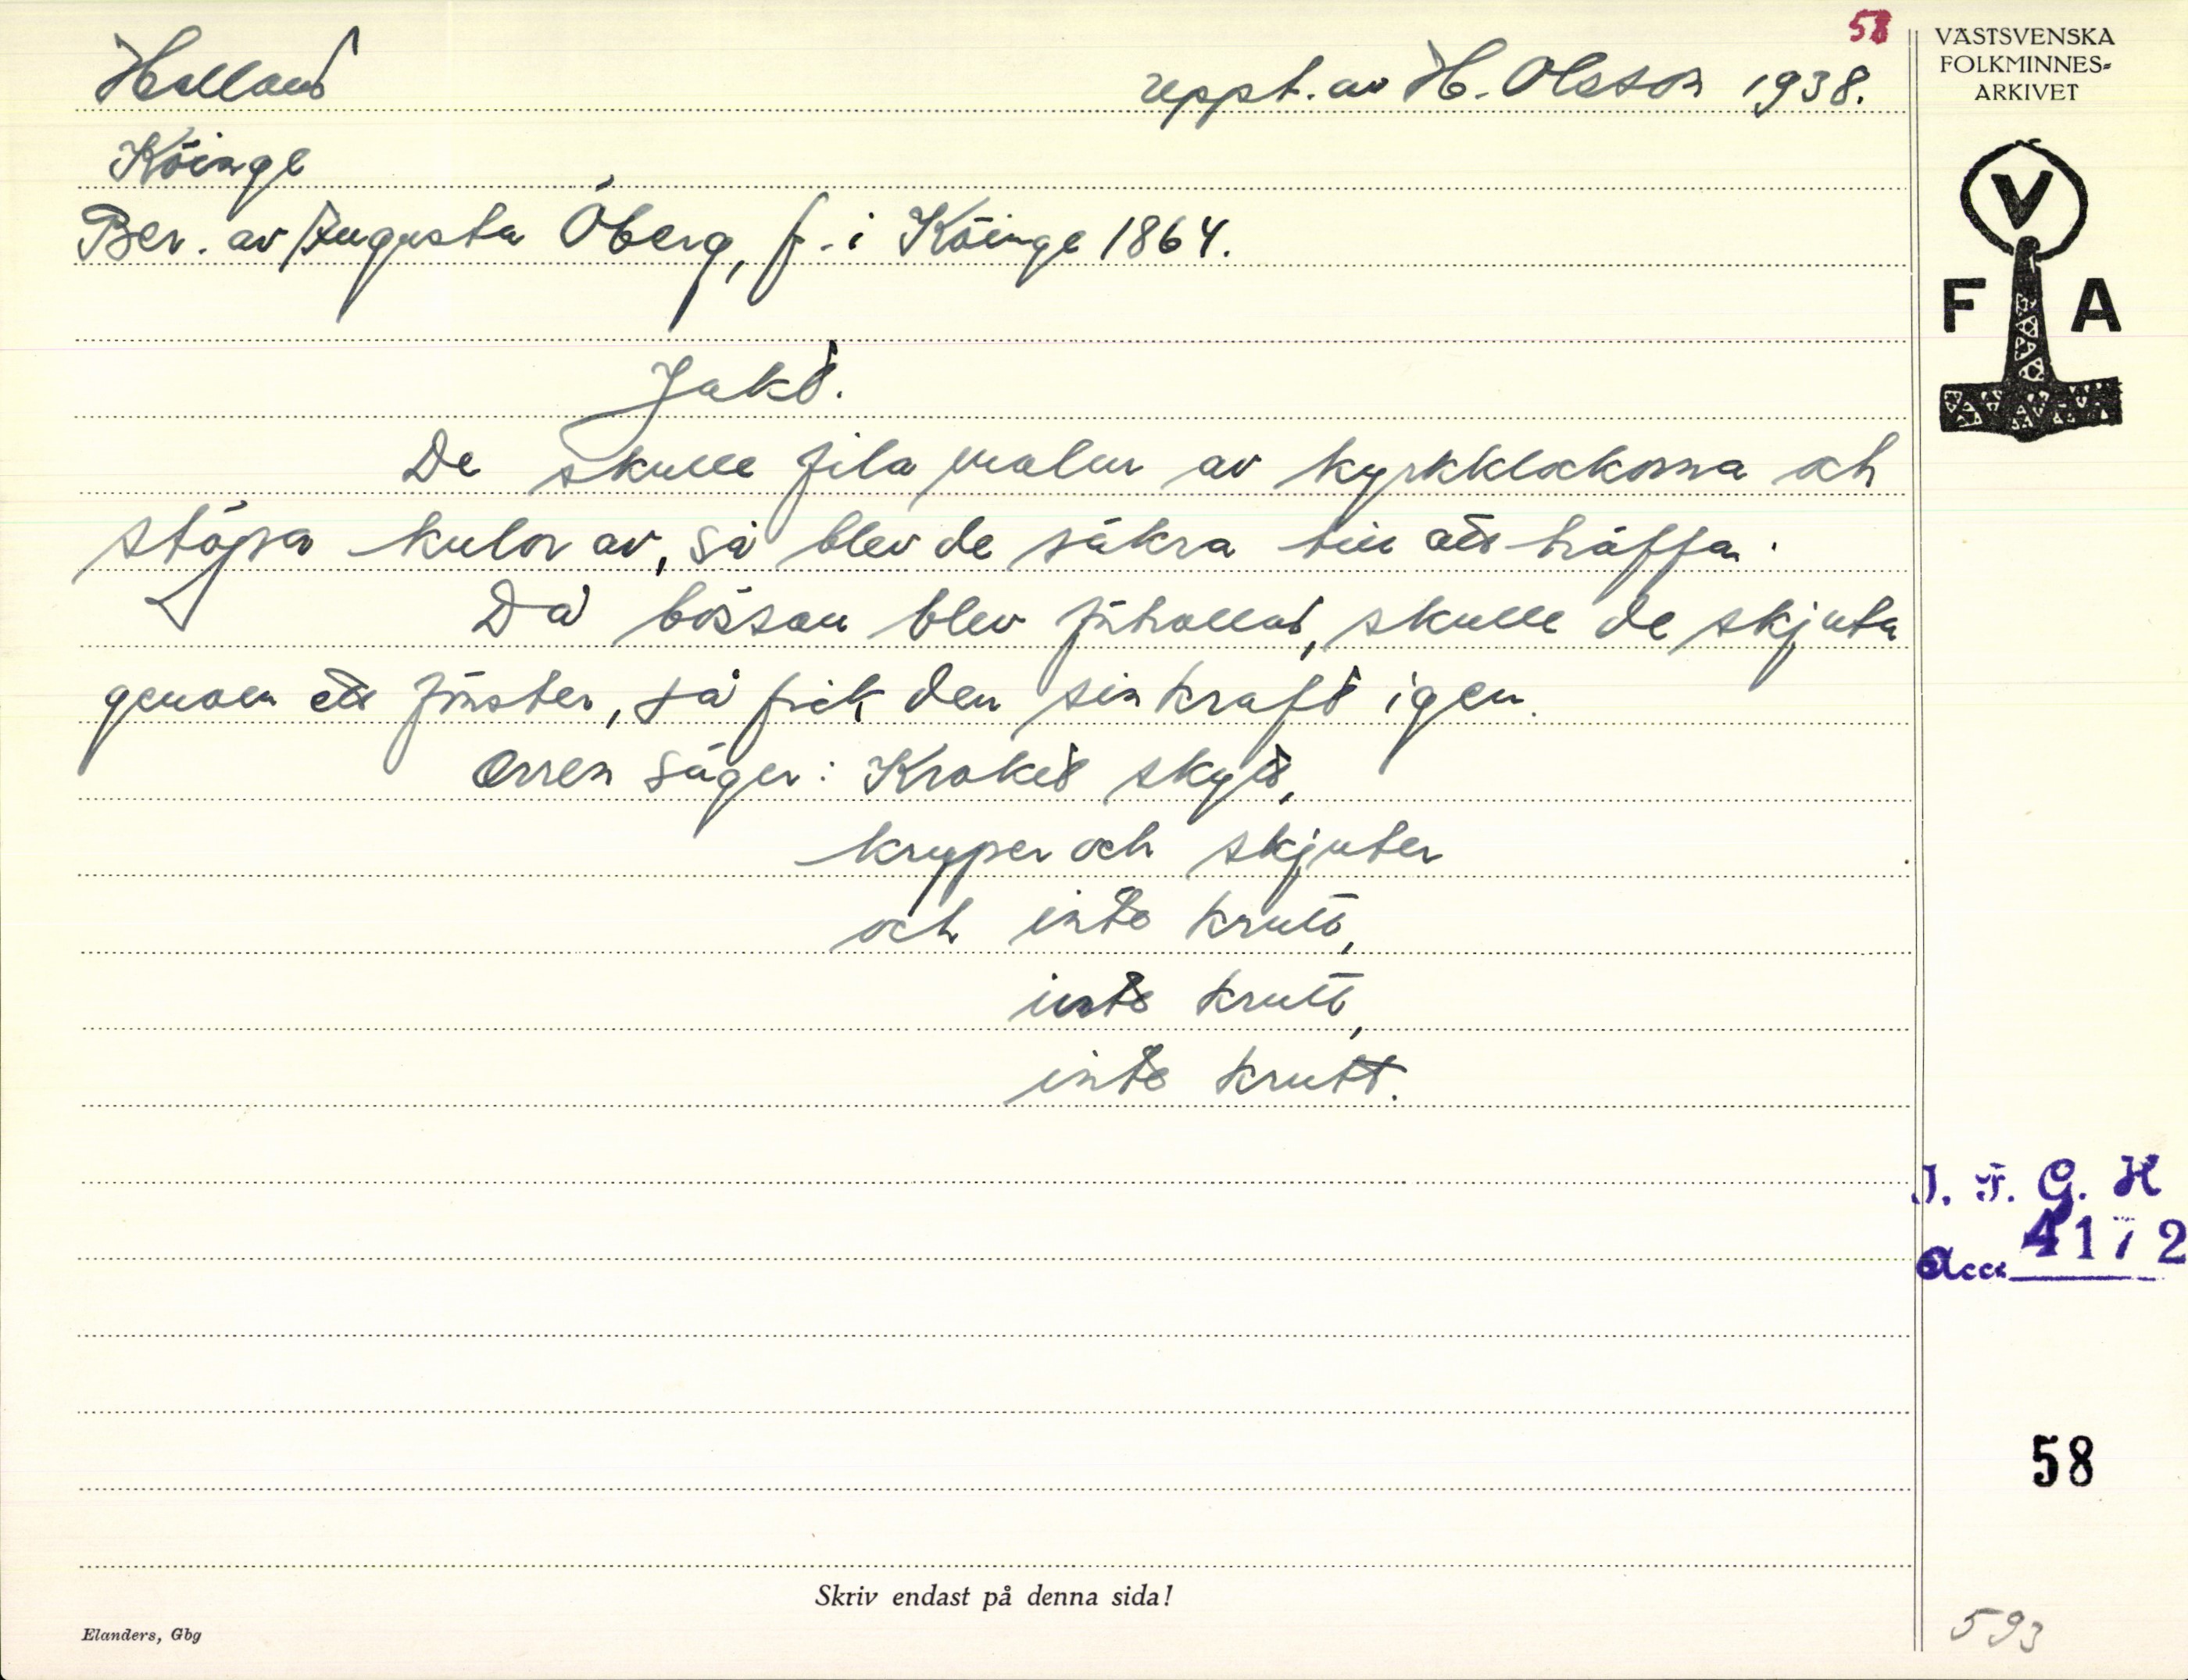 58
Halland
uppt. av H. Olsson 1938.
Köinge
Ber. av Augusta Öberg, f. i Köinge 1864.
Jakt.
De skulle fila malm av kyrkklockorna och
stöpa kulor av, så blev de säkra till att träffa.
Då bössan blev förtrollad, skulle de skjuta
genom ett fönster, så fick den sin kraft igen.
Orren säger: Kroket skytt,
kryper och skjuter
och inte krutt,
inte krutt,
inte krutt.
Skriv endast på denna sida!
Elanders, Gbg
VÄSTSVENSKA
FOLKMINNES-
ARKIVET
V
F A
I. F. G. H
4172
Acc.
58
593